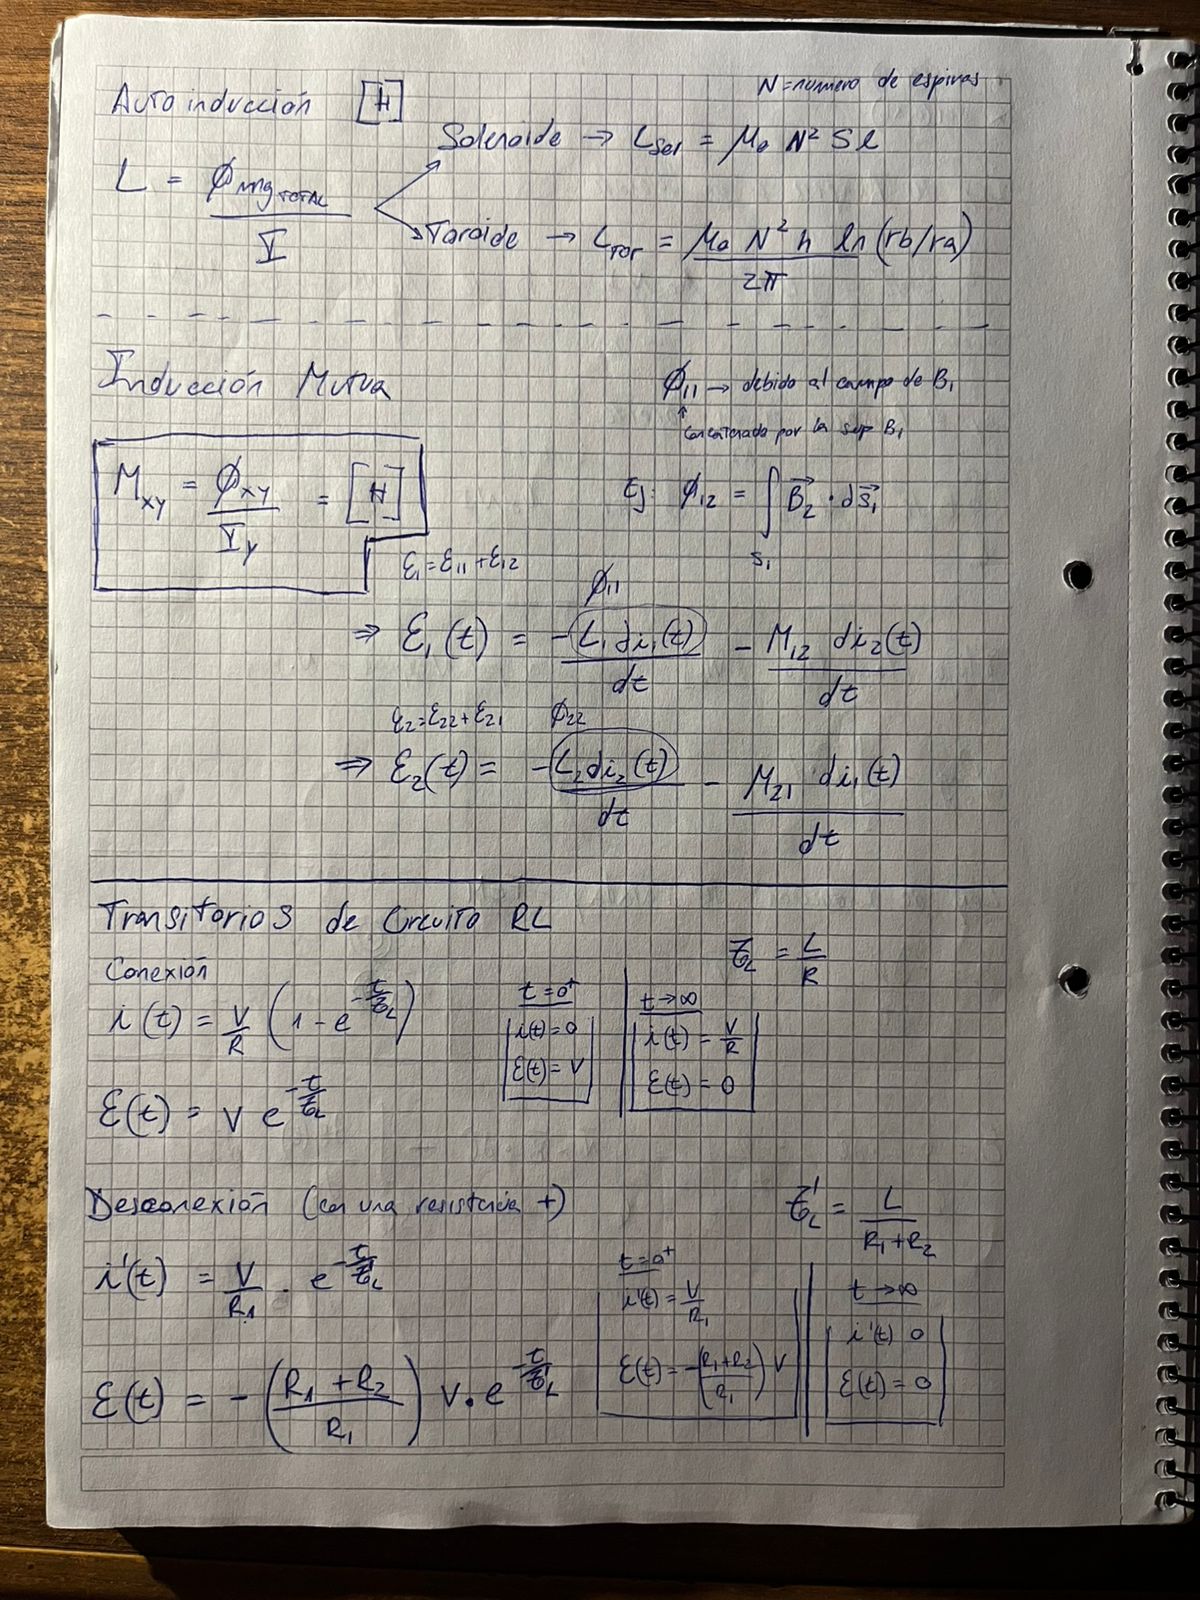 N = número de espiras
Auto inducción [H]
Solenoide → L_Sol = μ₀ N² S l
L = Φ_mg TOTAL / I
Toroide → L_Tor = μ₀ N² h ln(rb/ra) / 2π
Inducción Mutua
Φ₁₁ → debido al campo de B₁
concatenado por la sup B₁
M_xy = Φ_xy / I_y = [H]
Ej: Φ₁₂ = ∫_S₁ B⃗₂ · ds⃗₁
ε₁ = ε₁₁ + ε₁₂
Φ₁₁
⇒ ε₁(t) = - L₁ di₁(t) / dt - M₁₂ di₂(t) / dt
ε₂ = ε₂₂ + ε₂₁ Φ₂₂
⇒ ε₂(t) = - L₂ di₂(t) / dt - M₂₁ di₁(t) / dt
Transitorios de Circuito RL
τ_L = L / R
Conexión
i(t) = V/R (1 - e^(-t/τ_L))
t = 0⁺
i(t) = 0
ε(t) = V
t → ∞
i(t) = V/R
ε(t) = 0
ε(t) = V e^(-t/τ_L)
Desconexión (con una resistencia +)
τ'_L = L / R₁ + R₂
i'(t) = V/R₁ · e^(-t/τ'_L)
t = 0⁺
i'(t) = V/R₁
ε(t) = -(R₁ + R₂ / R₁) V
t → ∞
i'(t) 0
ε(t) = 0
ε(t) = - (R₁ + R₂ / R₁) V · e^(-t/τ_L)